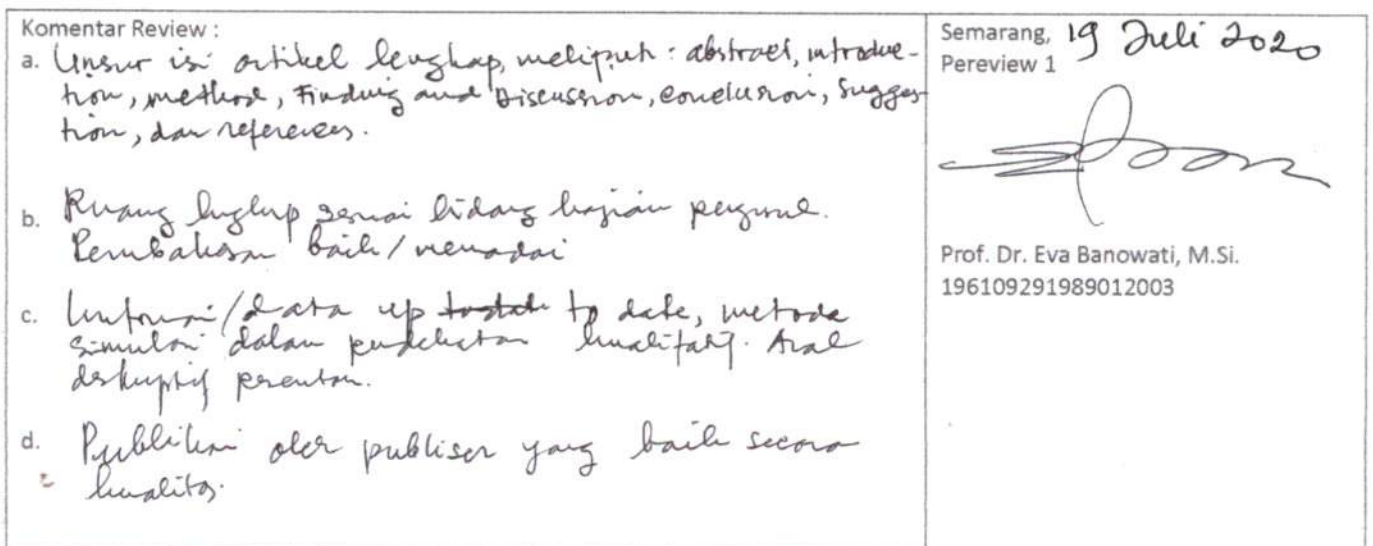 Komentar Review :
a. Unsur isi artikel lengkap, meliputi : abstract, introduc-
tion, method, Finding and Discussion, conclusion, Sugges
tion, dan references.
b. Ruang lingkup sesuai bidang kajian pengusul.
Pembahasan baik/memadai
c. Informasi/data up to date, metode
simulasi dalam pendekatan kualitatif. Anal
deskriptif persentase.
d. Publikasi oleh publiser yang baik secara
kualitas.
Semarang, 19 Juli 2020
Pereview 1
Prof. Dr. Eva Banowati, M.Si.
196109291989012003